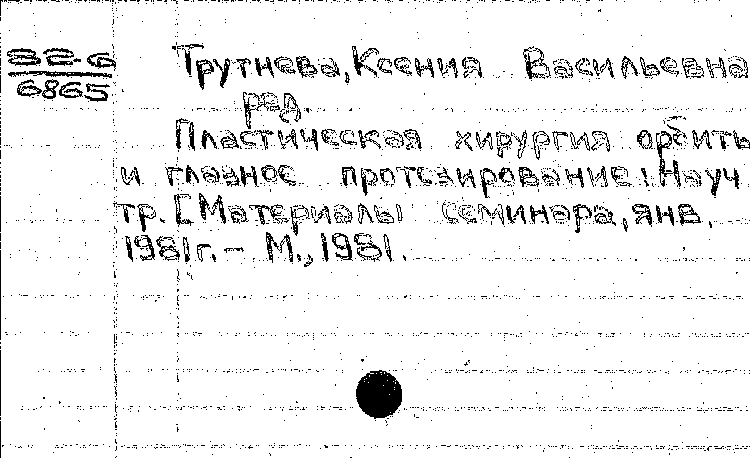 82-6
6865
Трутнева, Ксения Васильевна
ред.
Пластическая хирургия орбиты
и глазное протезирование: Науч.
тр. [Материалы семинара, янв.
1981г. - М., 1981.